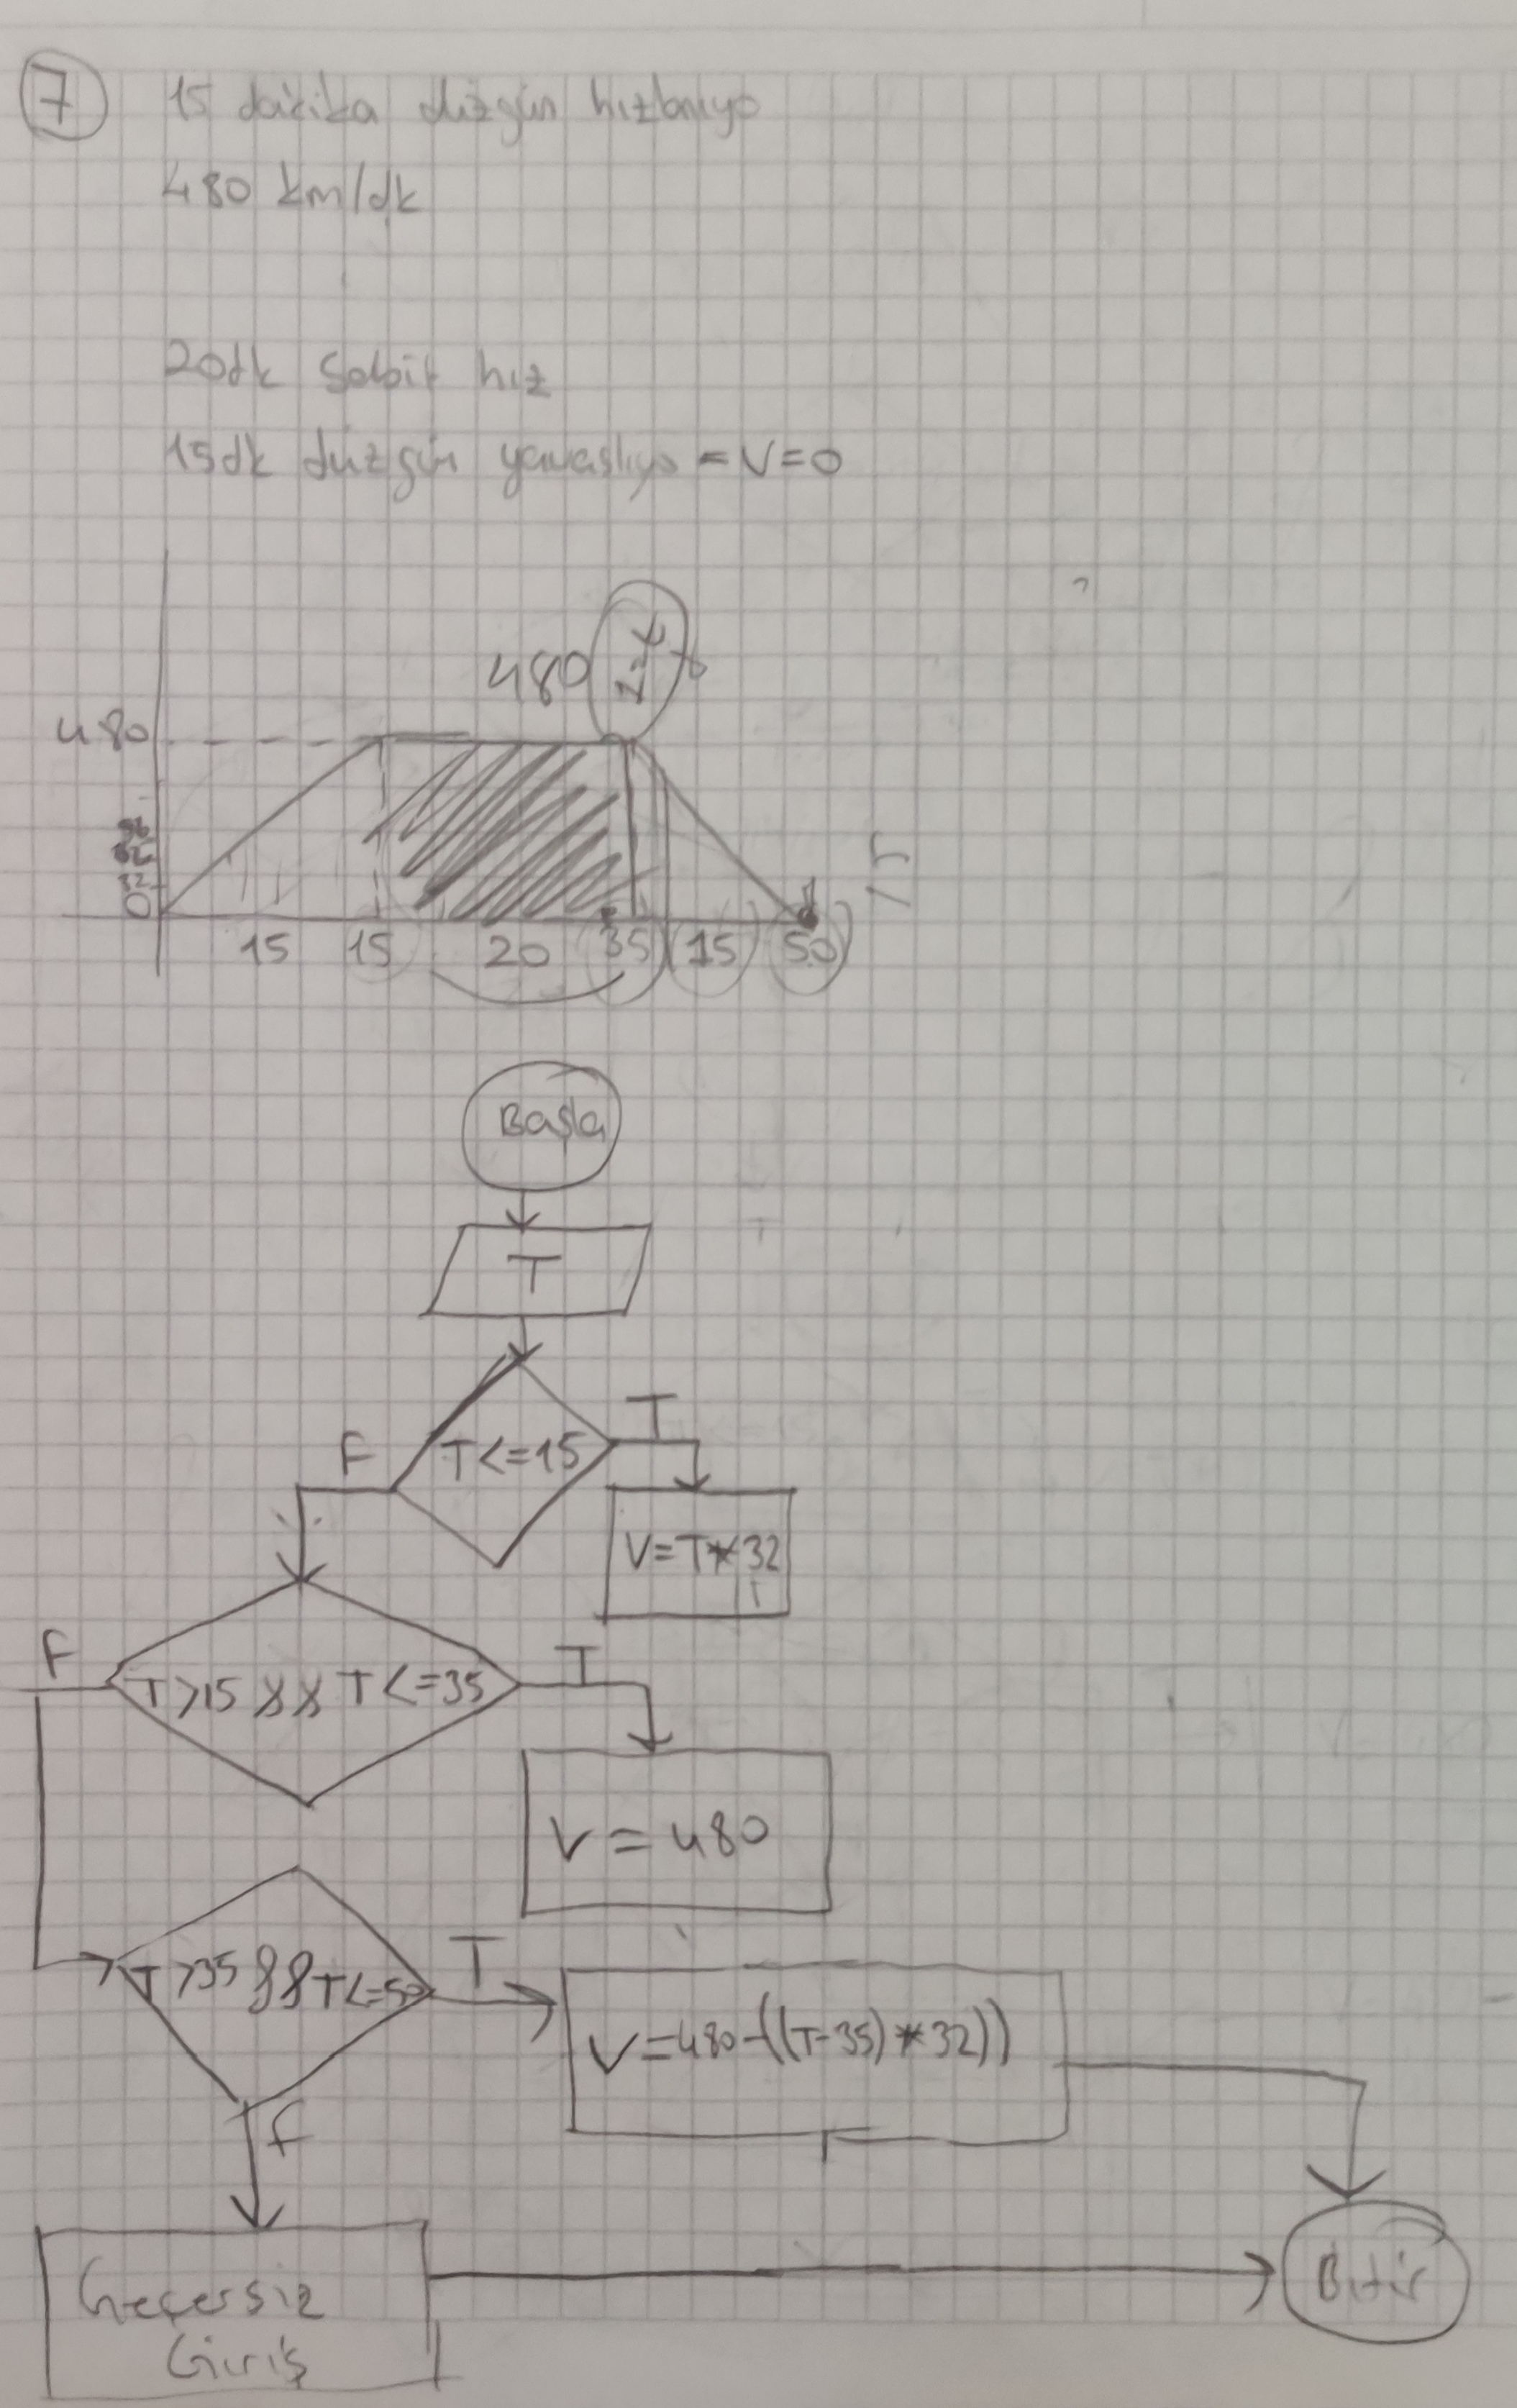 7 15 dakika düzgün hızlanıyo
480 km/dk
20dk Sabit hız
15dk düzgün yavaşlıyo = V=0
480
480
96
62
32
0
15 15 20 35 15 50
15
Başla
T
T<=15
F
T
V=T*32
T>15 && T<=35
F
T
V=480
T>35 && T<=50
T
F
V=480-((T-35)*32))
Geçersiz
Giriş
Bitir